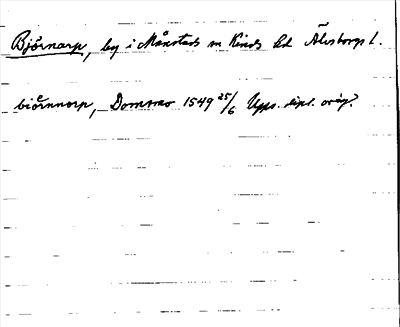 Björnarp, by i Månstads sn Kinds hd Älvsborgs l.
biörnnorp, 1549 25/6 Upps. dipl. orig.